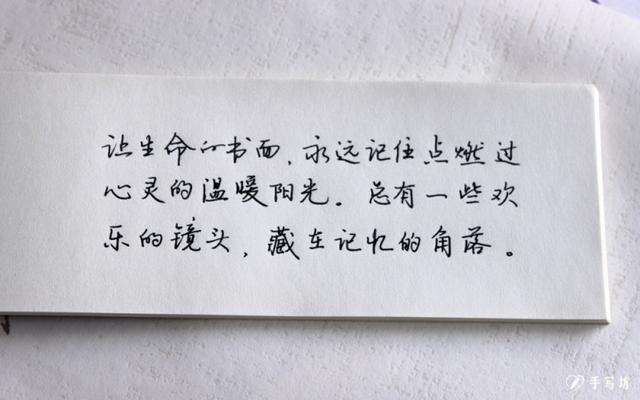 让生命的书面，永远记住点燃过
心灵的温暖阳光。总有一些欢
乐的镜头，藏在记忆的角落。
手写坊